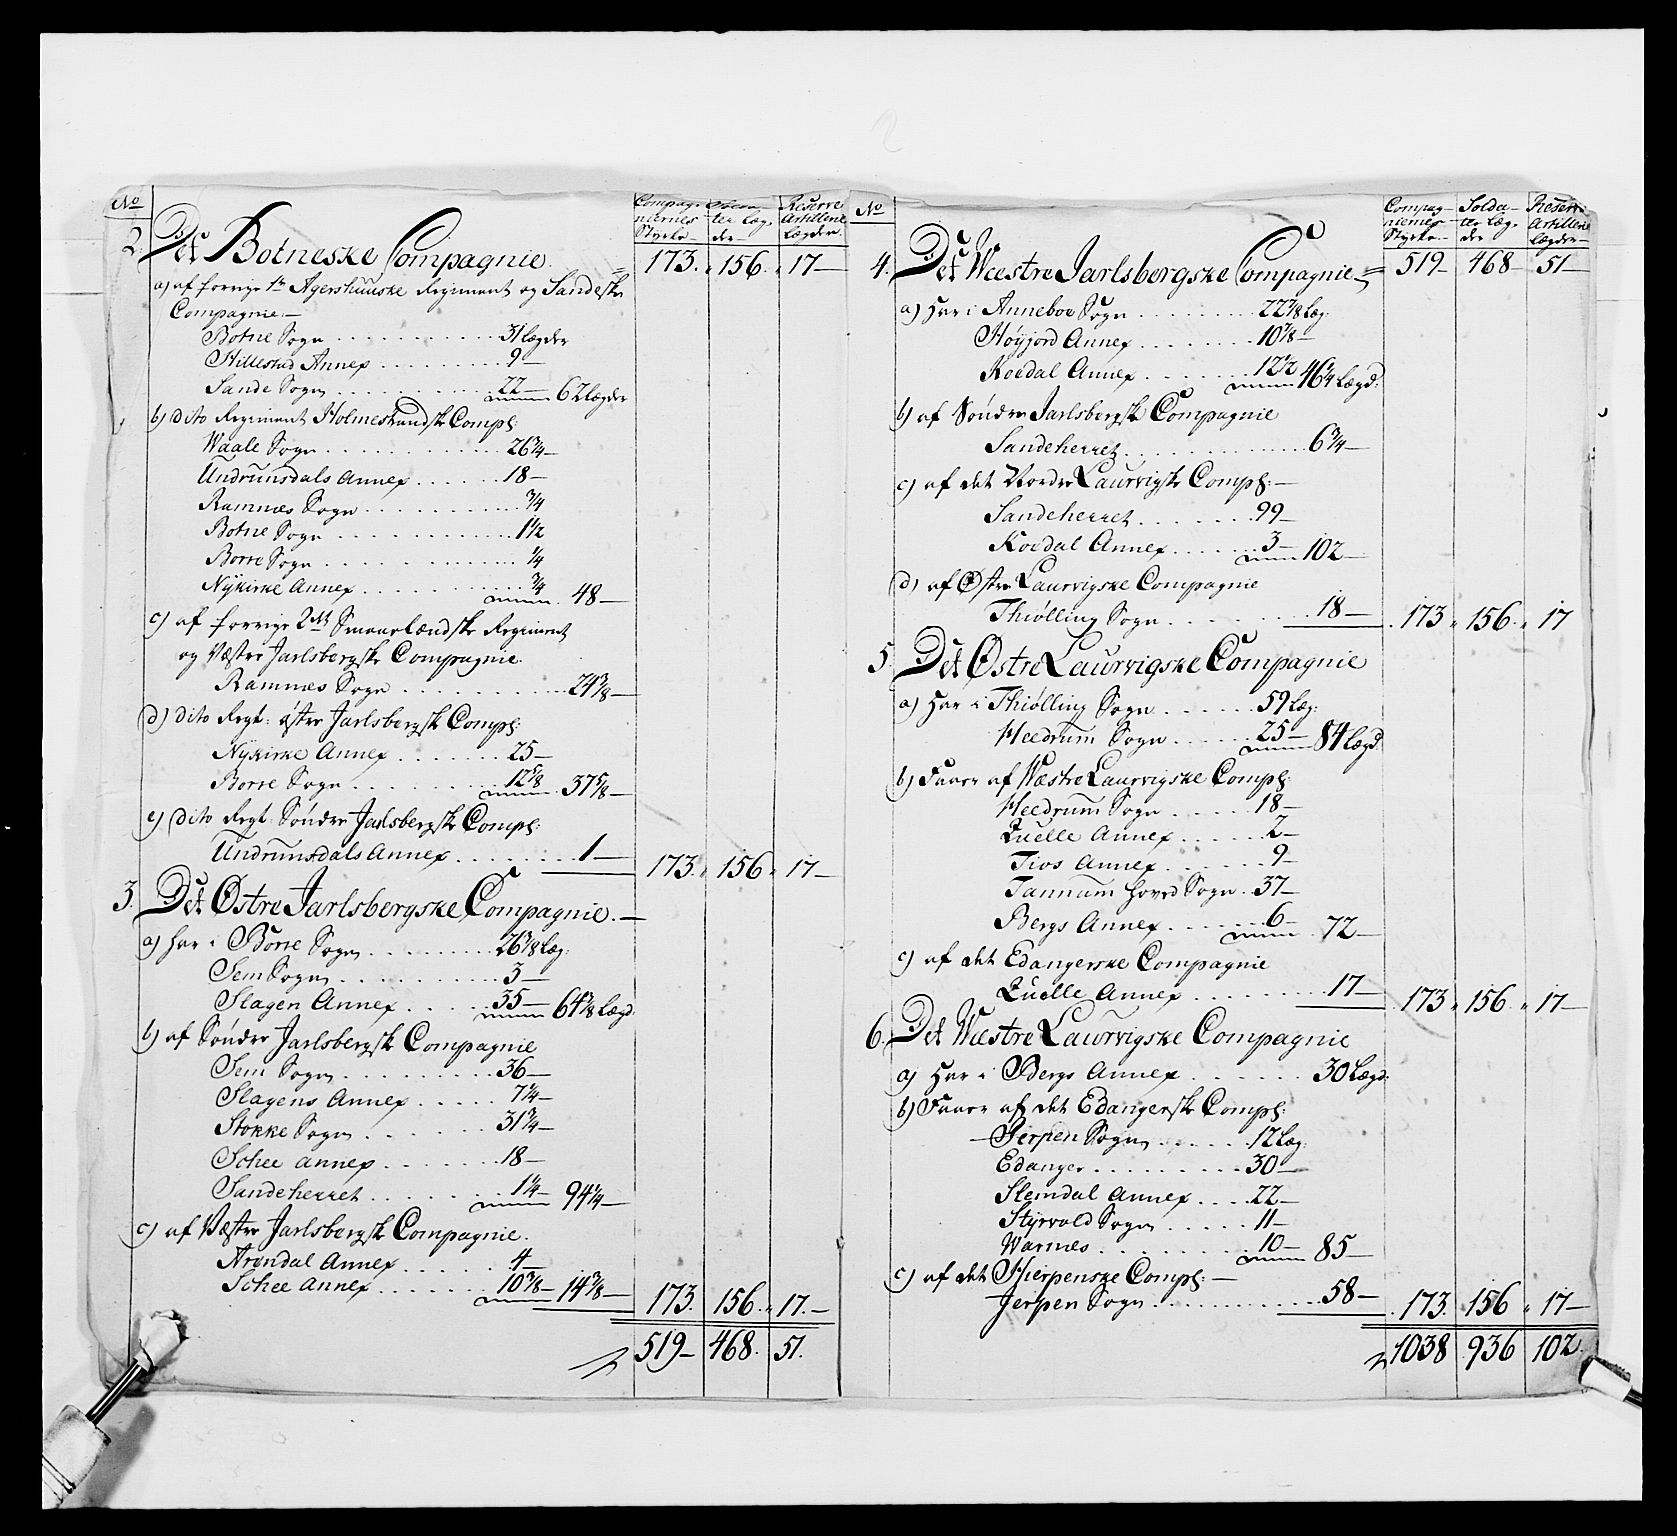 No
Compag-
niernes
Styrke
Solda-
ter læg-
der
Reserve
Artillerie
Lægder
2. Det Botneske Compagnie. = 173. 156. 17—
a) af forrige 1te Agershuuske Regiment og Sandeske
Compagnie.—
Botne Sogn . . . . . . 31 Lægder
Hillestad Annex . . . . . . 9—
Sande Sogn . . . . . . 22— 62 Lægder
b) dito Regiment Holmestrandske Comp:
Waale Sogn . . . . . . 26 3/4—
Undrunsdals Annex . . . . . . 18—
Ramnæs Sogn . . . . . . 3/4
Botne Sogn . . . . . . 1 1/2
Borre Sogn . . . . . . 1/4
Nykirke Annex . . . . . . 3/4 48—
c) af forrige 2det Smaaelændske Regiment
og Væstre Jarlsbergske Compagnie.
Ramnæs Sogn . . . . . . 24 3/8—
d) dito Regt: østre Jarlsbergsk Comp:
Nykirke Annex . . . . . . 25—
Borre Sogn . . . . . . 12 5/8 37 5/8—
e) dito Regt: Søndre Jarlsbergske Comp:
Undrunsdals Annex . . . . . . 1— 173. 156. 17—
3. Det Østre Jarlsbergske Compagnie.—
a) har i Borre Sogn . . . . . . 26 3/8 Læg:
Sem Sogn . . . . . . 3—
Slagen Annex . . . . . . 35— 64 3/8 Lægd
b) af Søndre Jarlsbergsk Compagnie
Sem Sogn . . . . . . 36—
Slagens Annex . . . . . . 7 1/4—
Stokke Sogn . . . . . . 31 3/4—
Schee annex . . . . . . 18—
Sandeherret . . . . . . 1 1/4— 94 1/4—
c) af Væstre Jarlsbergsk Compagnie.
Arendal Annex . . . . . . 4—
Schee Annex . . . . . . 10 3/8— 14 3/8— 173. 156. 17.—
519— 468. 51.
No
Compag-
niernes
Styrke
Solda-
ter Læg-
der
Reserv:
Artillerie
lægder
4. Det Wæstre Jarlsbergske Compagnie = 519— 468— 51—
a) Har i Anneboe Sogn . . . . . . 22 7/8 Læg:
Høyjord Annex . . . . . . 10 7/8—
Koedal Annex . . . . . . 12 1/2 46 1/4 Lægd:
b) af Søndre Jarlsbergsk Compagnie
Sandeherret . . . . . . 6 3/4—
c) af det Nordre Laurvigske Comp:—
Sandeherret . . . . . . 99—
Koedal Annex . . . . . . 3— 102—
d) af Østre Laurvigske Compagnie
Thiølling Sogn . . . . . . 18— 173. 156. 17
5. Det Østre Laurvigske Compagnie
a) Har i Thiølling Sogn . . . . . . 59 Læg:
Heedrum Sogn . . . . . . 25— 84 Lægd.
b) Faaer af Wæstre Laurvigske Comp:
Heedrum Sogn . . . . . . 18—
Quelle Annex . . . . . . 2—
Tios Annex . . . . . . 9—
Tannum Hoved Sogn . 37—
Bergs Annex . . . . . . 6— 72—
c) af det Edangerske Compagnie
Quelle Annex . . . . . . 17— 173. 156. 17—
6. Det Wæstre Laurvigske Compagnie
a) Har i Bergs Annex . . . . . . 30 Lægd:
b) Faaer af det Edangersk Comp:
Gierpen Sogn . . . . . . 12 Læg:
Edanger . . . . . . 30—
Slemdal Annex . . . . 22—
Styrvold Sogn . . . . . . 11—
Warnes . . . . . . 10— 85—
c) af det Hierpenske Comp:—
Jerpen Sogn . . . . . . 58— 173. 156 17—
1038 936 102.